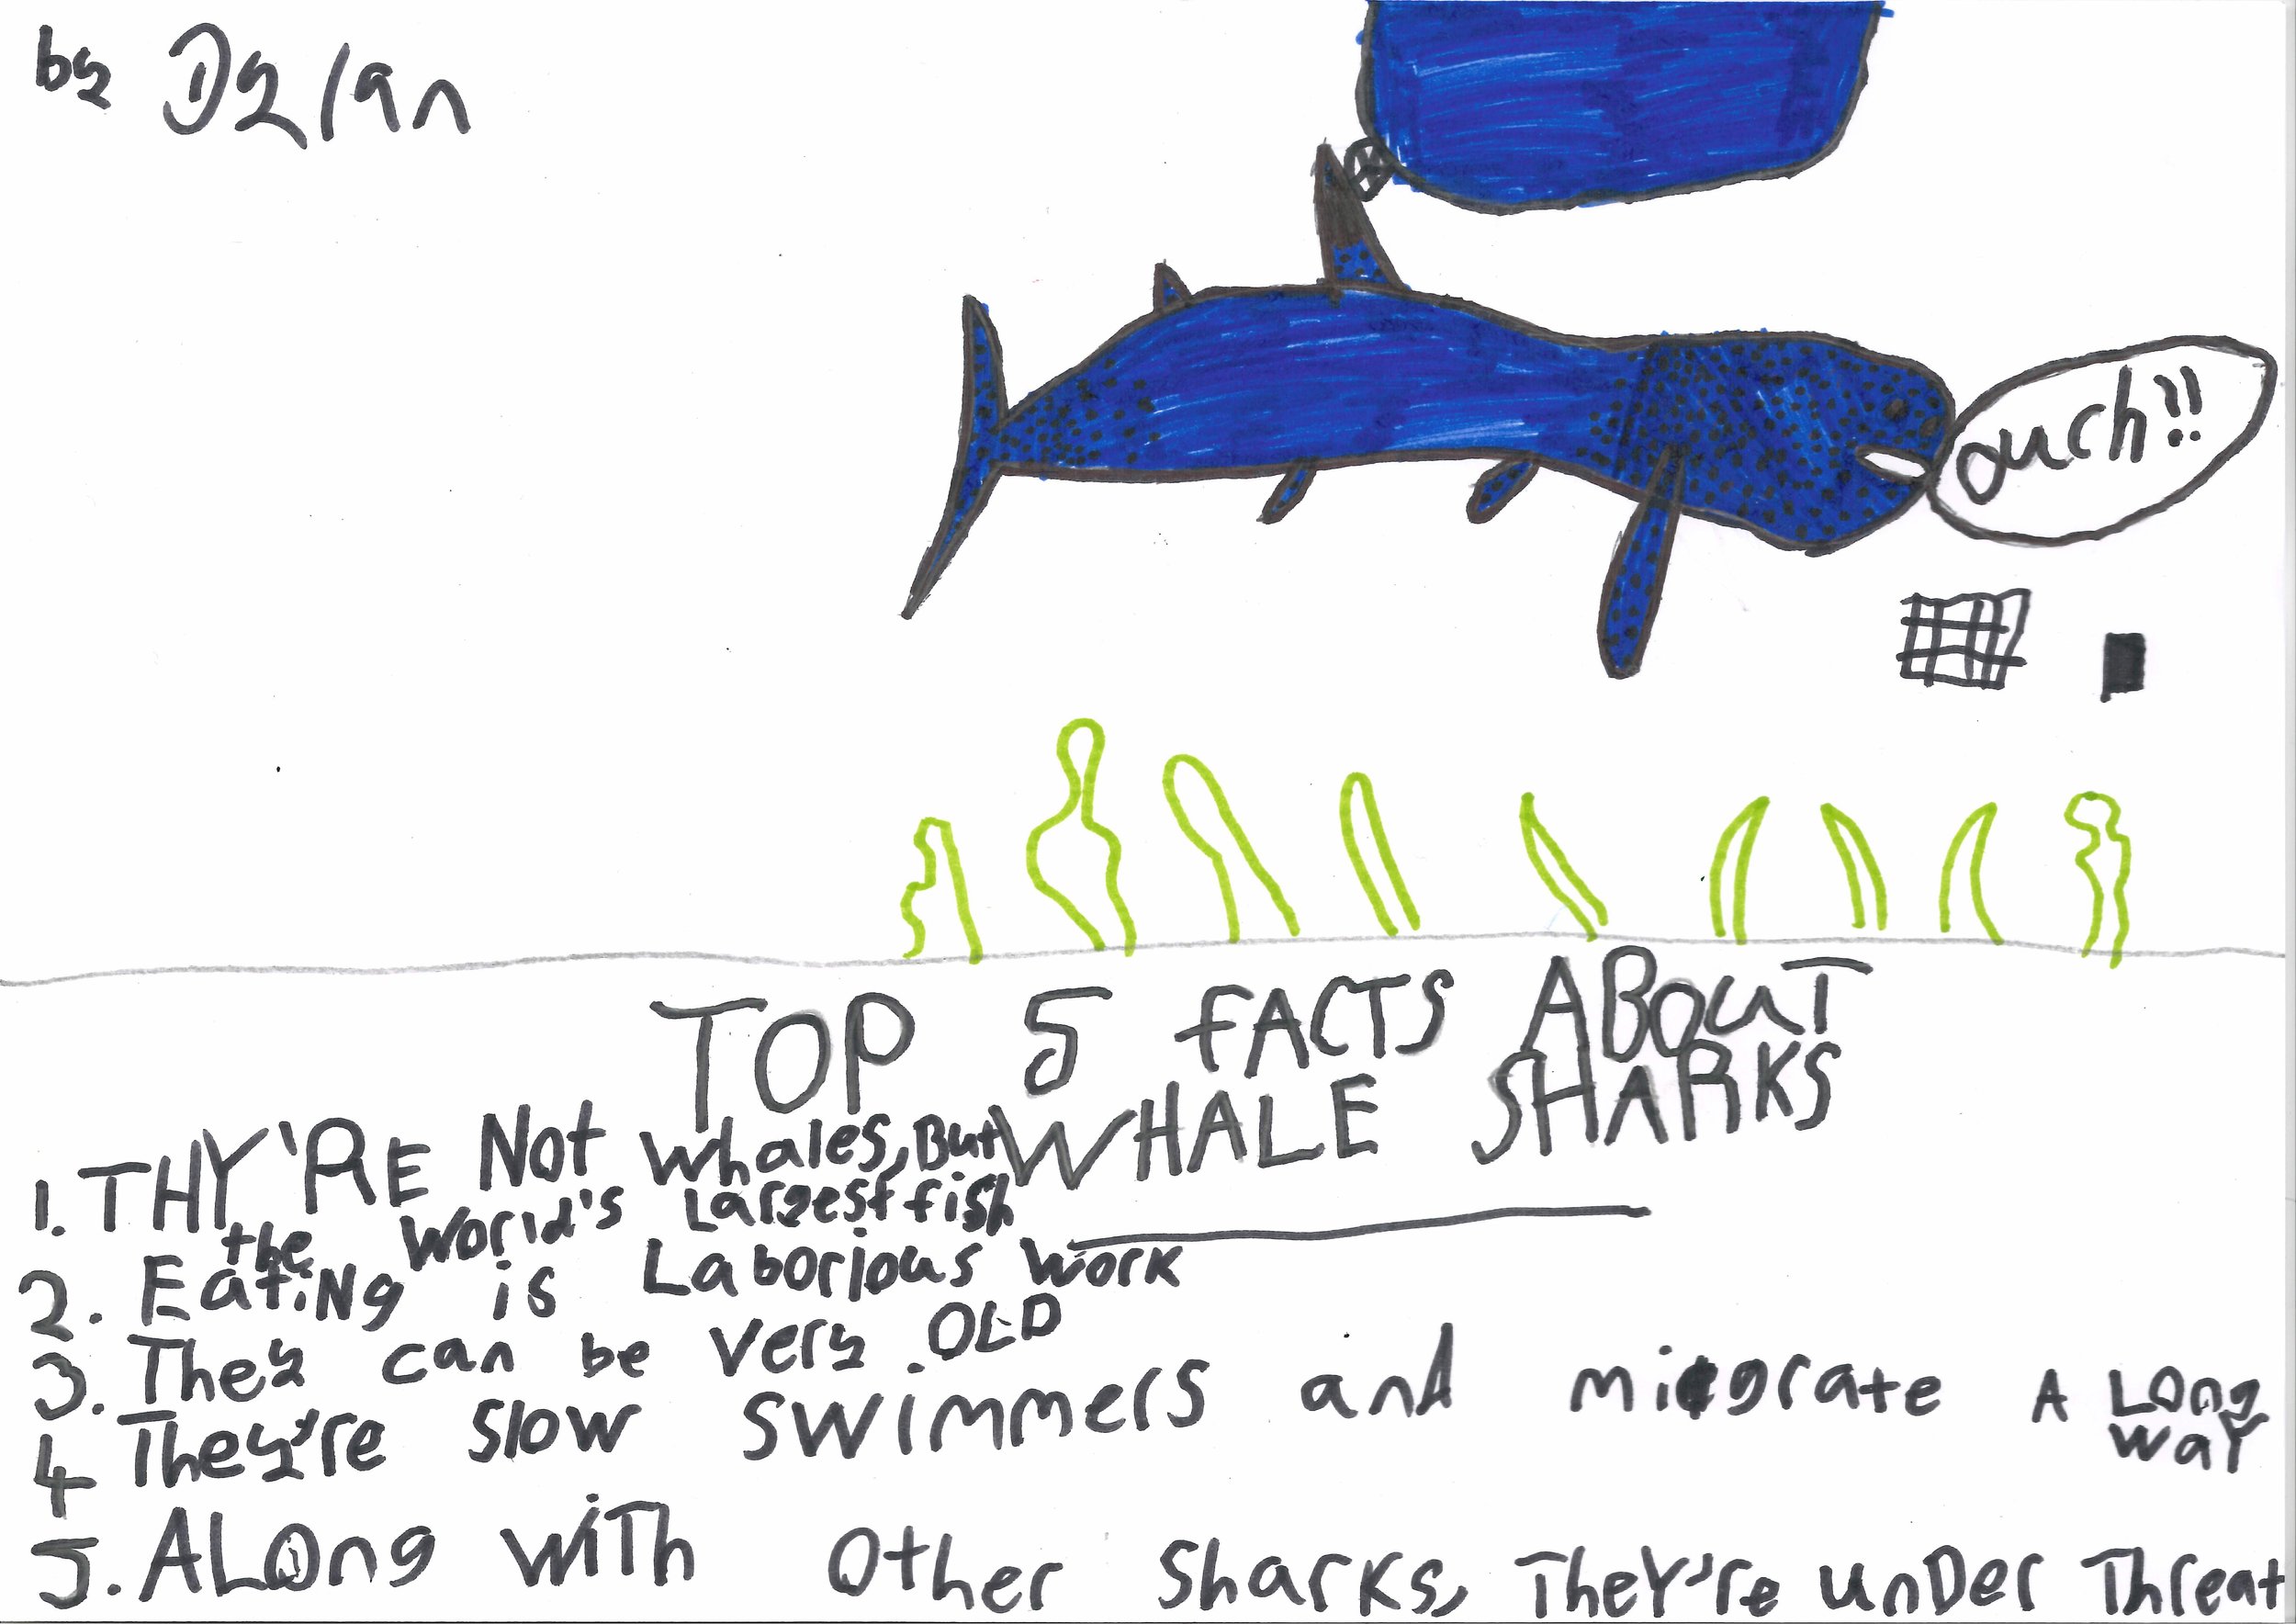 by Dylan
ouch!!
TOP 5 fACTS ABOuT
WHALE SHARKS
1. THY'RE Not whales, But
the World's Largest fish
2. EatiNg is Laborious work
3. They can be very OLD
4 They're slow swimmers and migrate A LOng
waY
5. ALOng wiTh Other Sharks, TheY're unDer Threat